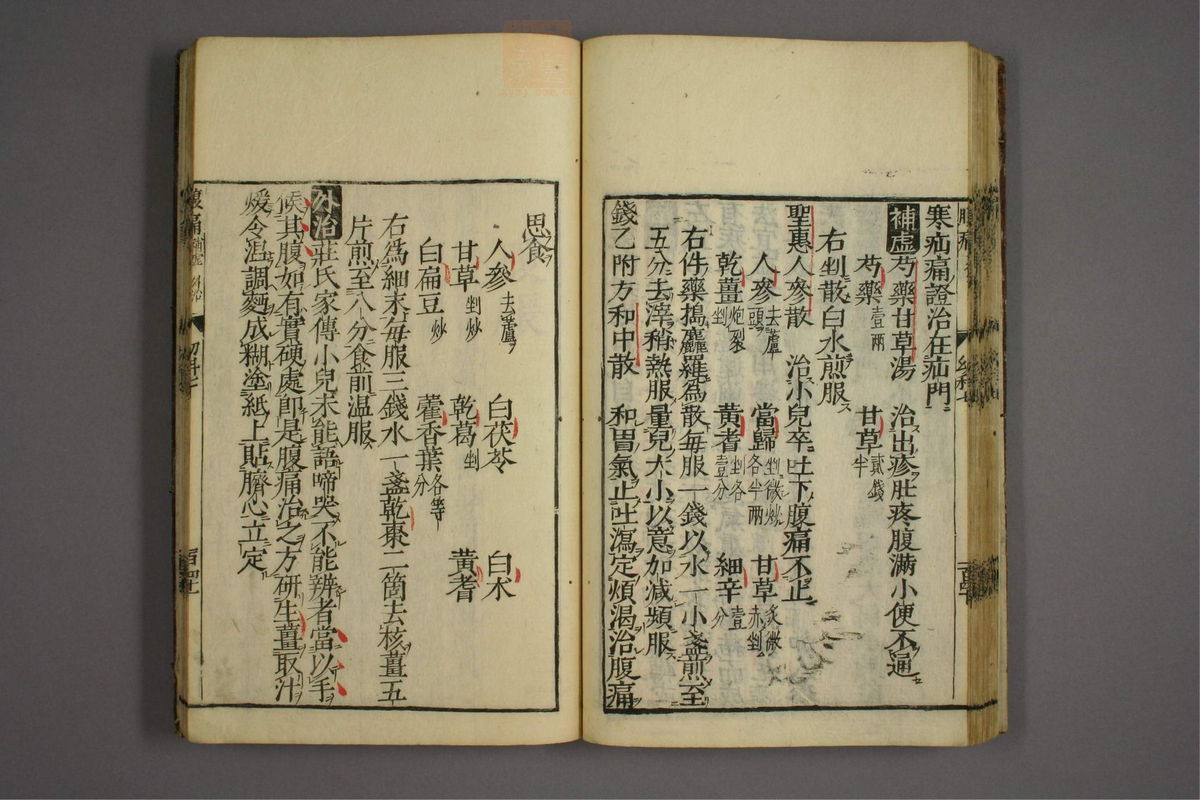 寒疝痛證治在疝門
補虛 芍藥甘草湯 治出疹肚疼腹滿小便不通
芍藥壹兩 甘草貳錢半
右剉散白水煎服
聖惠人參散 治小兒卒吐下腹痛不止
人參去蘆頭 當歸剉微炒各半兩 甘草炙微赤剉
乾薑炮裂剉 黃耆剉各壹分 細辛壹分
右件藥搗麤羅為散每服一錢以水一小盞煎至
五分去滓稍熱服量兒大小以意加減頻服
錢乙附方和中散 和胃氣止吐瀉定煩渴治腹痛
思食
人參去蘆 白茯苓 白朮
甘草剉炒 乾葛剉 黃耆
白扁豆炒 藿香葉各等分
右為細末每服三錢水一盞乾棗二箇去核薑五
片煎至八分食前温服
外治 莊氏家傳小兒未能語啼哭不能辨者當以手
候其腹如有實硬處即是腹痛治之方研生薑取汁
煖令温調麵成糊塗紙上貼臍心立定
腹痛 補虛 外治 幼科七